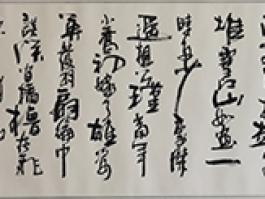 堆雪江山如畫一
時多少豪傑
遥想公瑾當年
小喬初嫁了雄姿
英發羽扇綸巾
談笑間檣櫓灰飛